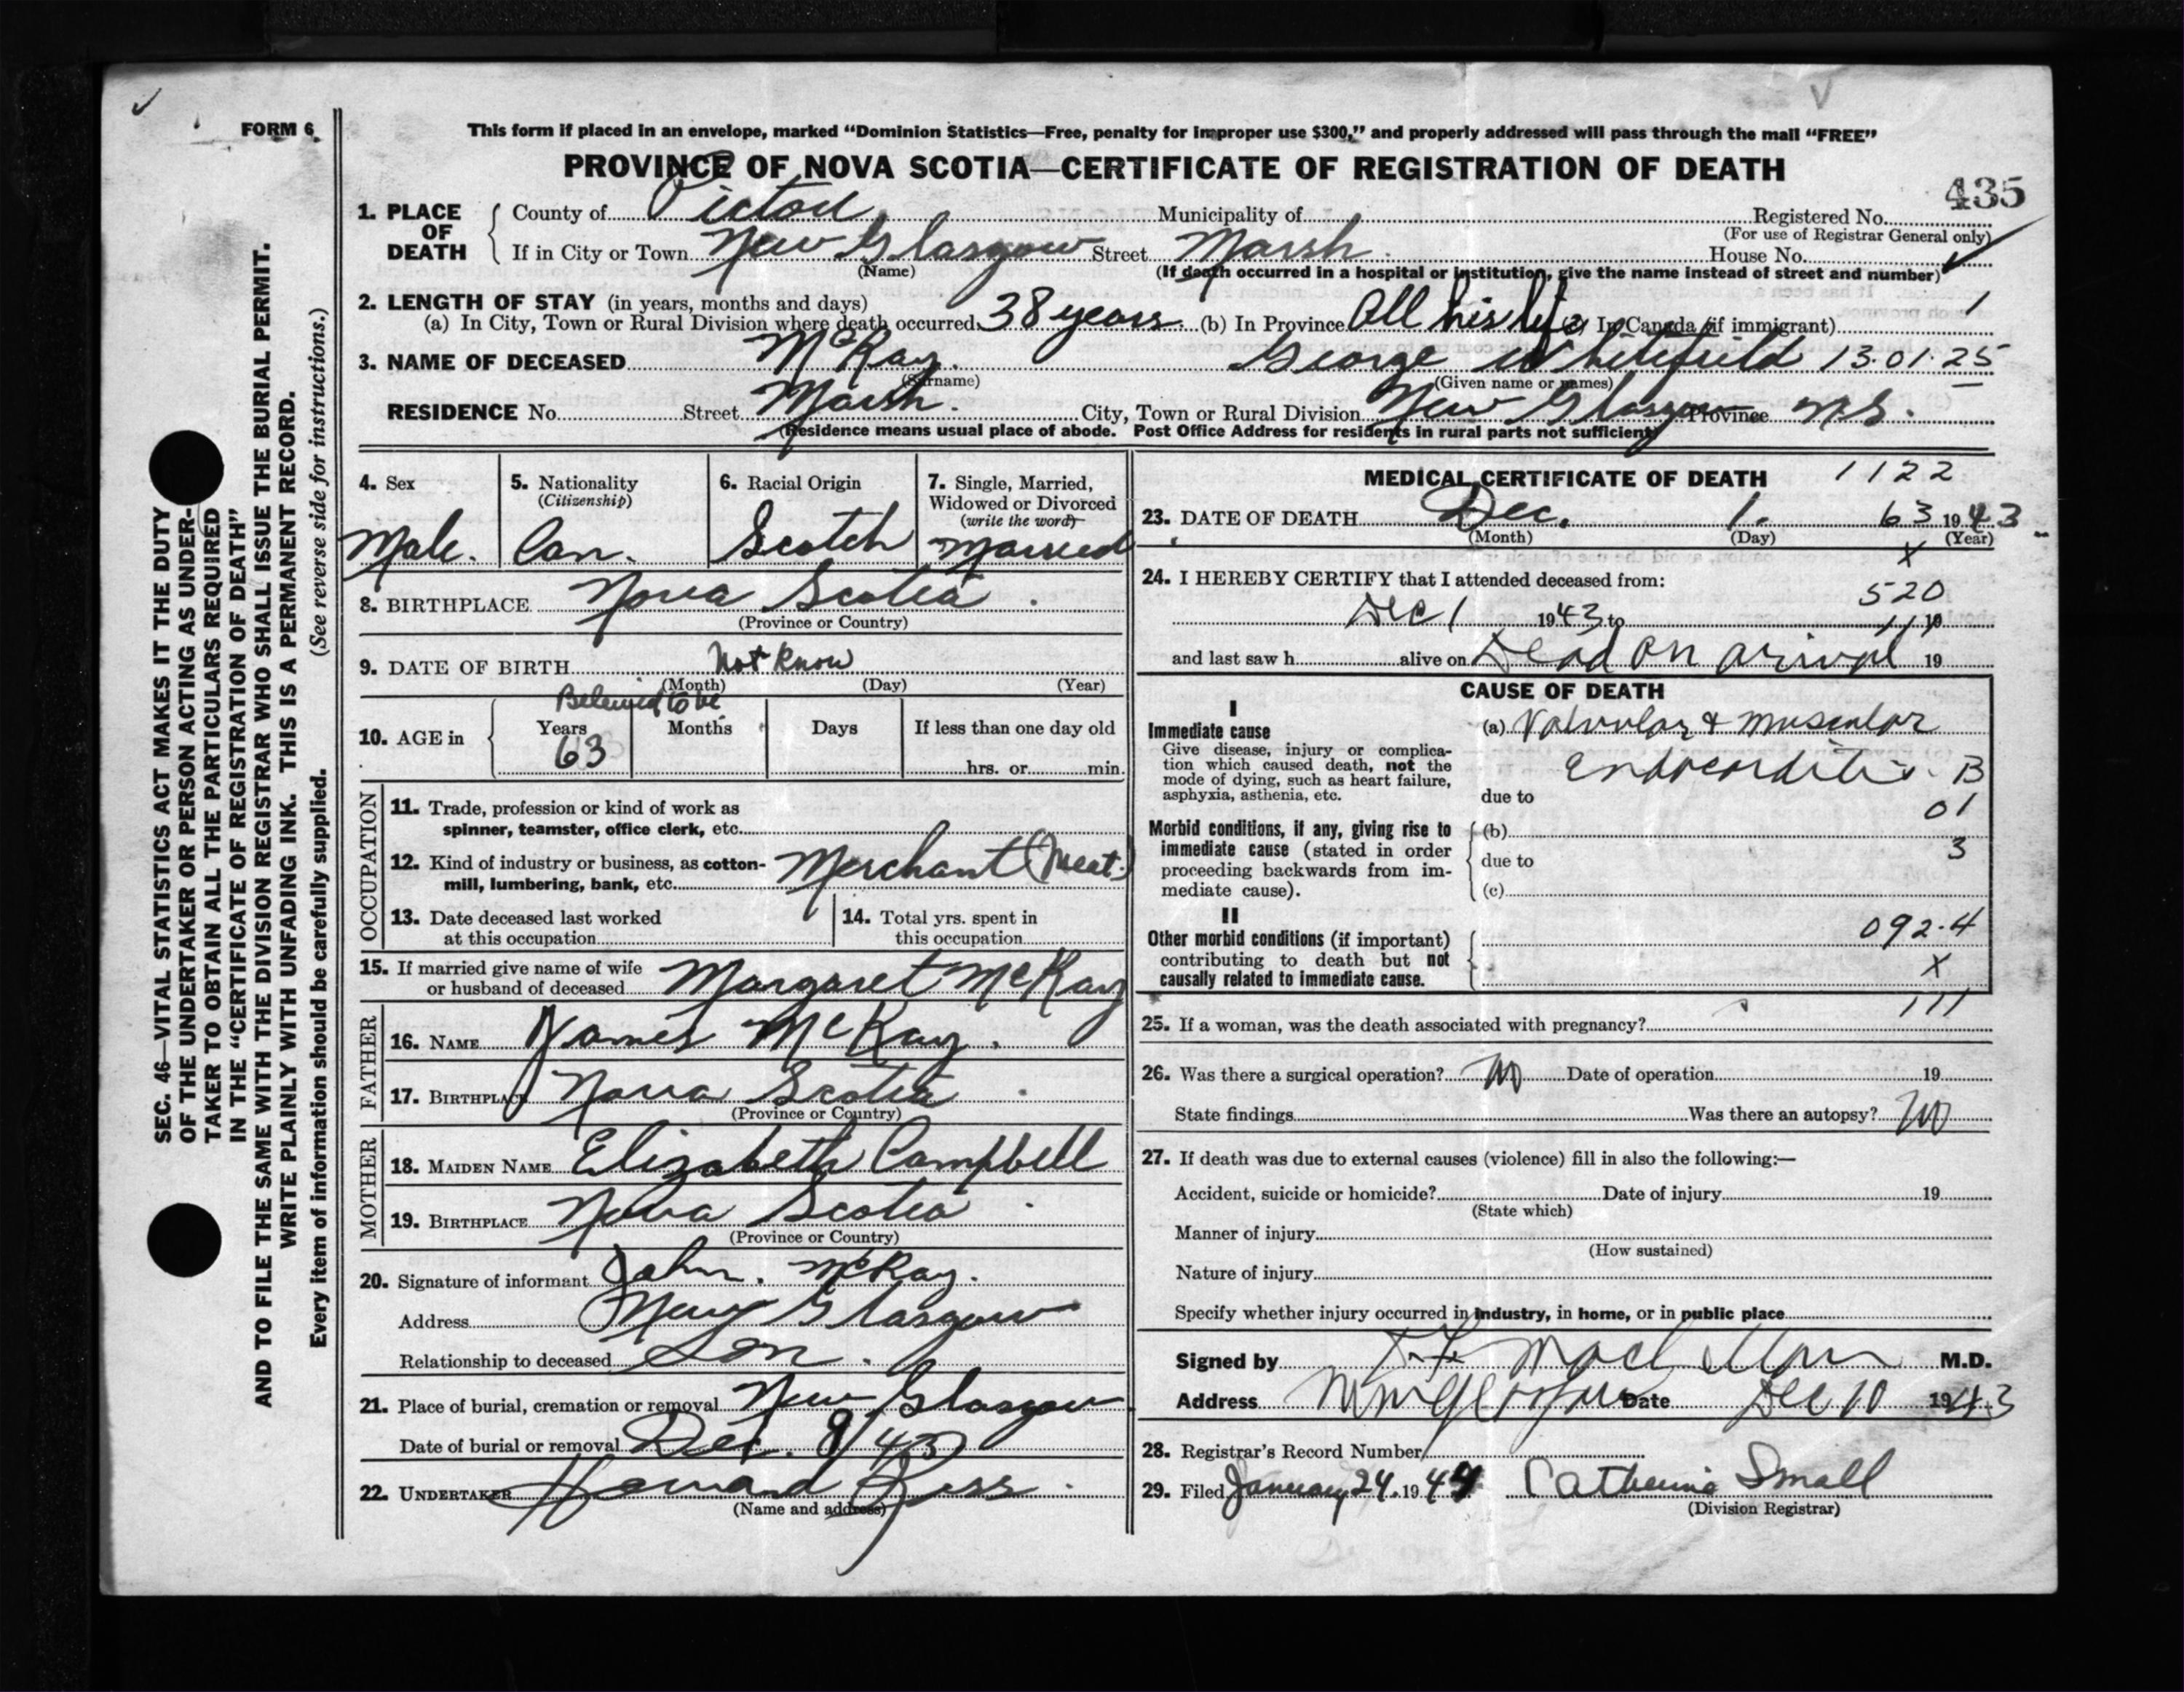 FORM 6
This form if placed in an envelope, marked “Dominion Statistics—Free, penalty for improper use $300,” and properly addressed will pass through the mail “FREE”
PROVINCE OF NOVA SCOTIA—CERTIFICATE OF REGISTRATION OF DEATH
435
1. PLACE OF DEATH County of Pictou Municipality of Registered No.
(For use of Registrar General only)
If in City or Town New Glasgow Street Marsh House No.
(Name) (If death occurred in a hospital or institution, give the name instead of street and number)
2. LENGTH OF STAY (in years, months and days)
(a) In City, Town or Rural Division where death occurred 38 years (b) In Province All his life (c) In Canada (if immigrant) 1
3. NAME OF DECEASED McKay. George Whitefield 13·01·25
(Surname) (Given name or names)
RESIDENCE No. Street Marsh. City, Town or Rural Division New Glasgow Province N.S.
(Residence means usual place of abode. Post Office Address for residents in rural parts not sufficient)
4. Sex 5. Nationality 6. Racial Origin 7. Single, Married,
(Citizenship) Widowed or Divorced
(write the word)
Male. Can. Scotch Married
8. BIRTHPLACE Nova Scotia
(Province or Country)
9. DATE OF BIRTH Not Know
(Month) (Day) (Year)
Believed to be
10. AGE in Years Months Days If less than one day old
63 hrs. or min.
OCCUPATION
11. Trade, profession or kind of work as
spinner, teamster, office clerk, etc.
12. Kind of industry or business, as cotton-
mill, lumbering, bank, etc. Merchant (Meat.)
13. Date deceased last worked 14. Total yrs. spent in
at this occupation this occupation
15. If married give name of wife
or husband of deceased Margaret McKay
FATHER
16. NAME James McKay.
17. BIRTHPLACE Nova Scotia
(Province or Country)
MOTHER
18. MAIDEN NAME Elizabeth Campbell
19. BIRTHPLACE Nova Scotia
(Province or Country)
20. Signature of informant John. McKay.
Address New Glasgow
Relationship to deceased Son.
21. Place of burial, cremation or removal New Glasgow
Date of burial or removal Dec. 9/43
22. UNDERTAKER Howard Ross
(Name and address)
MEDICAL CERTIFICATE OF DEATH 1122
23. DATE OF DEATH Dec. 1. 63 1943
(Month) (Day) (Year)
x
24. I HEREBY CERTIFY that I attended deceased from:
520
Dec 1 1943 to 19
and last saw h alive on Dead on arival 19
CAUSE OF DEATH
I
Immediate cause (a) Valvular & muscular
Give disease, injury or complica-
tion which caused death, not the
mode of dying, such as heart failure,
asphyxia, asthenia, etc.
Endocarditis. B
due to 01
Morbid conditions, if any, giving rise to (b)
immediate cause (stated in order 3
proceeding backwards from im- due to
mediate cause). (c)
II
Other morbid conditions (if important) 092·4
contributing to death but not
causally related to immediate cause. X
111
25. If a woman, was the death associated with pregnancy?
26. Was there a surgical operation? No Date of operation 19
State findings Was there an autopsy? No
27. If death was due to external causes (violence) fill in also the following:—
Accident, suicide or homicide? Date of injury 19
(State which)
Manner of injury
(How sustained)
Nature of injury
Specify whether injury occurred in industry, in home, or in public place
Signed by M.D.
Address Date Dec 10 1943
28. Registrar's Record Number
29. Filed January 24. 1944 Catherine Small
(Division Registrar)
SEC. 46—VITAL STATISTICS ACT MAKES IT THE DUTY
OF THE UNDERTAKER OR PERSON ACTING AS UNDER-
TAKER TO OBTAIN ALL THE PARTICULARS REQUIRED
IN THE “CERTIFICATE OF REGISTRATION OF DEATH”
AND TO FILE THE SAME WITH THE DIVISION REGISTRAR WHO SHALL ISSUE THE BURIAL PERMIT.
WRITE PLAINLY WITH UNFADING INK. THIS IS A PERMANENT RECORD.
Every item of information should be carefully supplied. (See reverse side for instructions.)